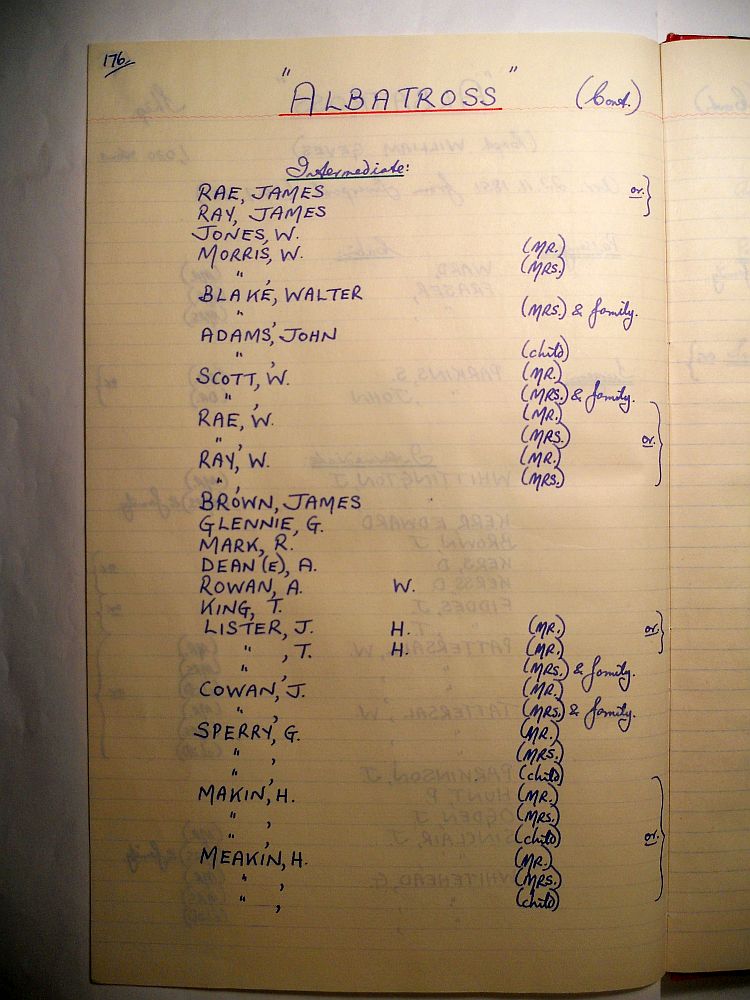 176.
"ALBATROSS" (Cont.)
Intermediate:
RAE, JAMES or.
RAY, JAMES
JONES, W.
MORRIS, W. (MR.)
" , (MRS.)
BLAKE, WALTER
" , (MRS.) & family.
ADAMS, JOHN
" , (child)
SCOTT, W. (MR.)
" , (MRS.) & family.
RAE, W. (MR.)
" , (MRS.) or.
RAY, W. (MR.)
" , (MRS.)
BROWN, JAMES
GLENNIE, G.
MARK, R.
DEAN (E), A.
ROWAN, A. W.
KING, T.
LISTER, J. H. (MR.) or.
" , T. H. (MR.)
(MRS.) & family.
COWAN, J. (MR.)
" , (MRS.) & family.
SPERRY, G. (MR.)
" , (MRS.)
" , (child)
MAKIN, H. (MR.)
" , (MRS.)
" , (child) or.
MEAKIN, H. (MR.)
" , (MRS.)
" , (child)